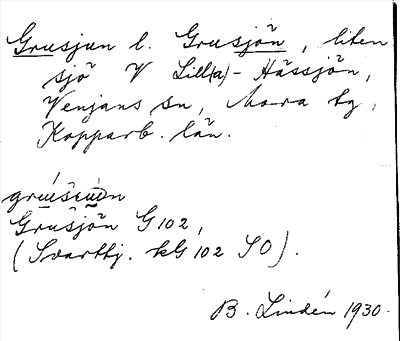 Grusjun l. Grusjön, liten
sjö V Lill(a)-Hässjön,
Venjans sn, Mora tg,
Kopparb. län.
Grusjön G102,
(Svartbj. kG 102 SO).
B. Lindén 1930.